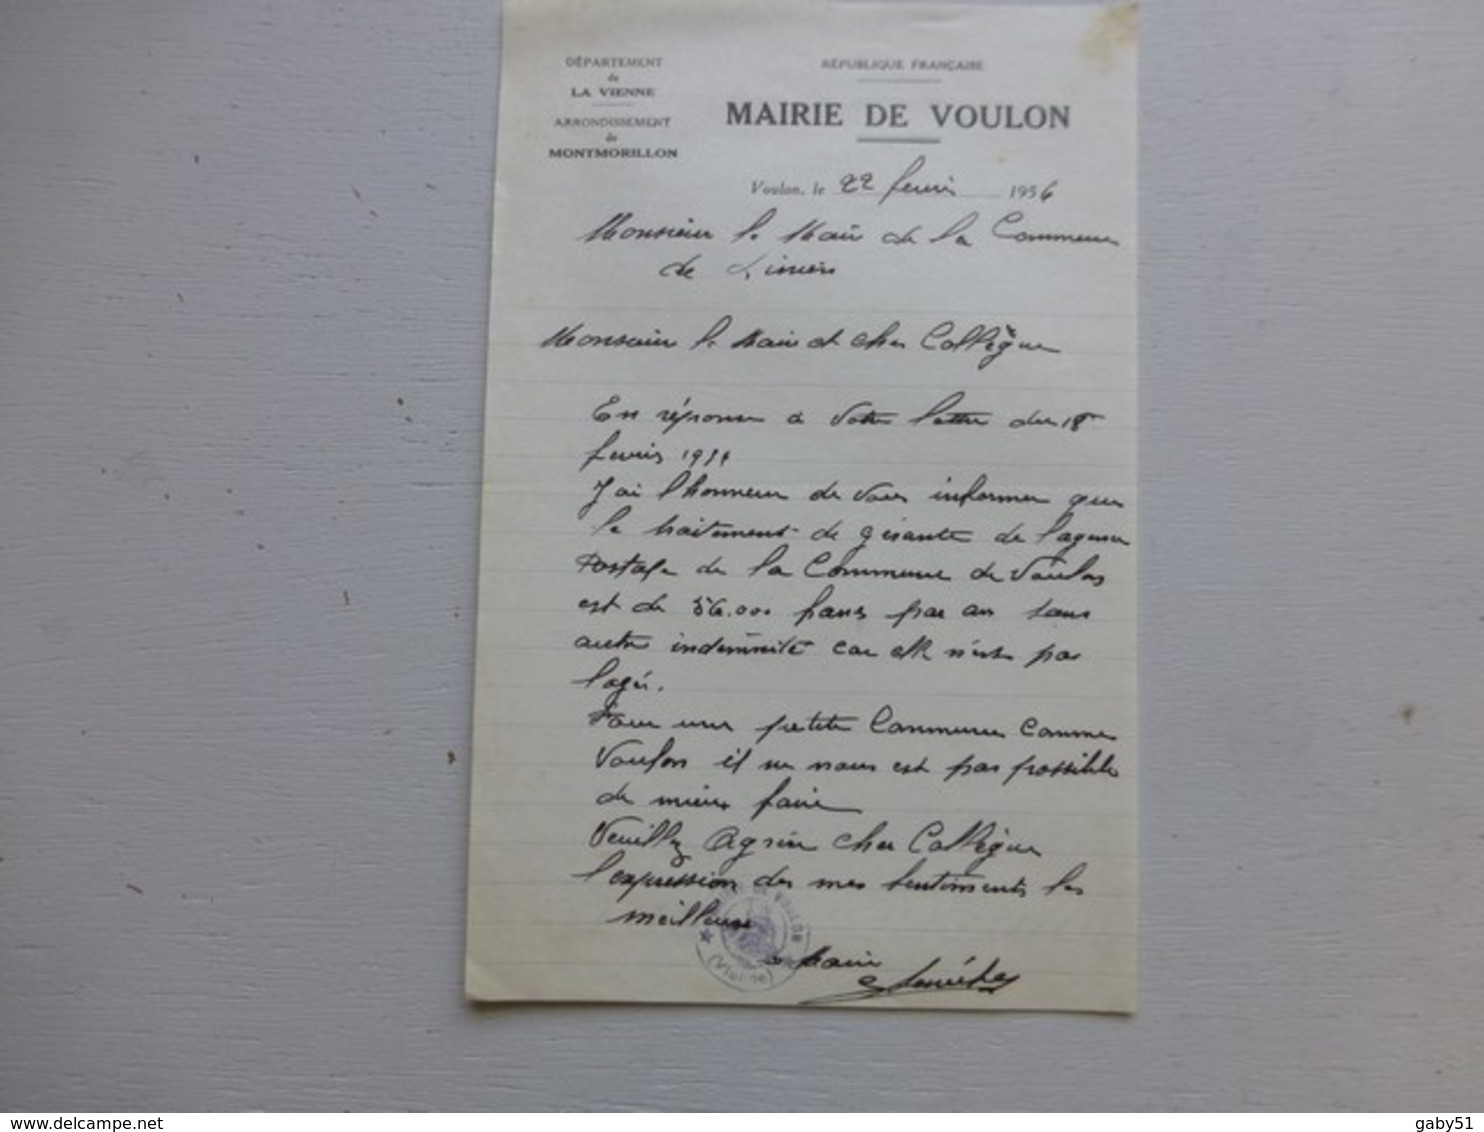 DÉPARTEMENT
de
LA VIENNE
ARRONDISSEMENT
de
MONTMORILLON
RÉPUBLIQUE FRANÇAISE
MAIRIE DE VOULON
Voulon, le 22 fevrier 1956
Monsieur le Maire de la Commune
de Liniers
Monsieur le Maire et cher Collègue
En réponse à votre lettre du 18
fevrier 1956
J'ai l'honneur de vous informer que
le traitement de gérante de l'agence
Postale de la Commune de Voulon
est de 56.000 francs par an sans
autre indemnité car elle n'est pas
logée.
Pour une petite Commune comme
Voulon il ne nous est pas possible
de mieux faire
Veuillez Agréer cher Collègue
l'expression de mes sentiments les
meilleurs
Le Maire
MAIRIE DE VOULON
(Vienne)
delcampe.net
gaby51